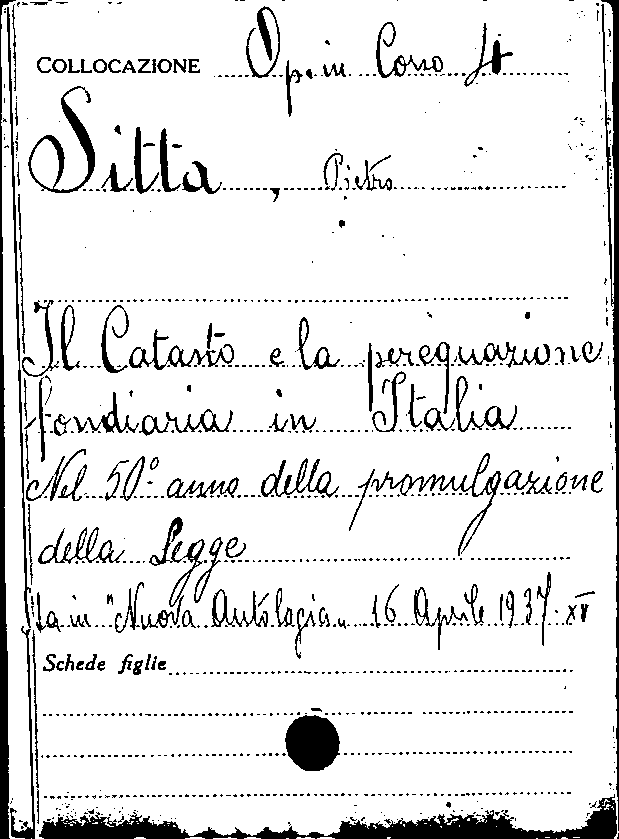 COLLOCAZIONE Op. in Corso 4
Sitta, Pietro
Il Catasto e la perequazione
fondiaria in Italia
Nel 50° anno della promulgazione
della Legge
Sta in "Nuova Antologia" 16 Aprile 1937-XV
Schede figlie